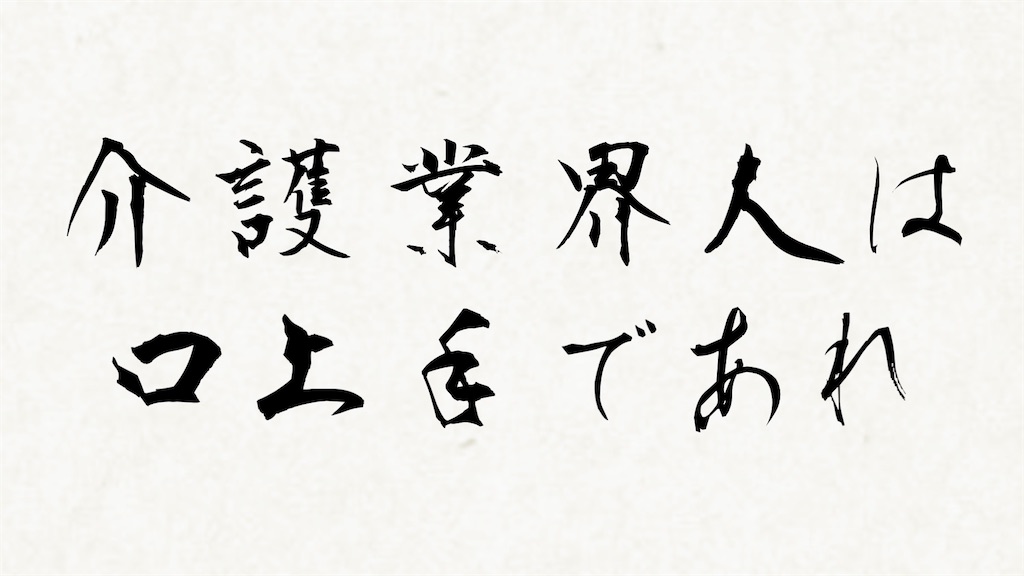 介護業界人は
口上手であれ